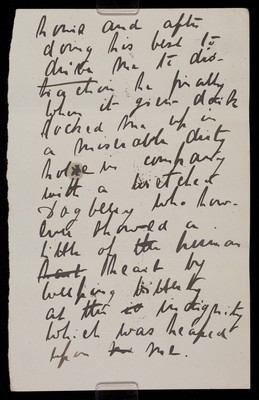 home and after
doing his best to
drive me to dis-
traction he finally
when it grew dark
locked me up in
a miserable dirty
hole in company
with a wretched
Dogberry who how-
ever showed a
little of the human
heart by
weeping bitterly
at the indignity
which was heaped
upon me.